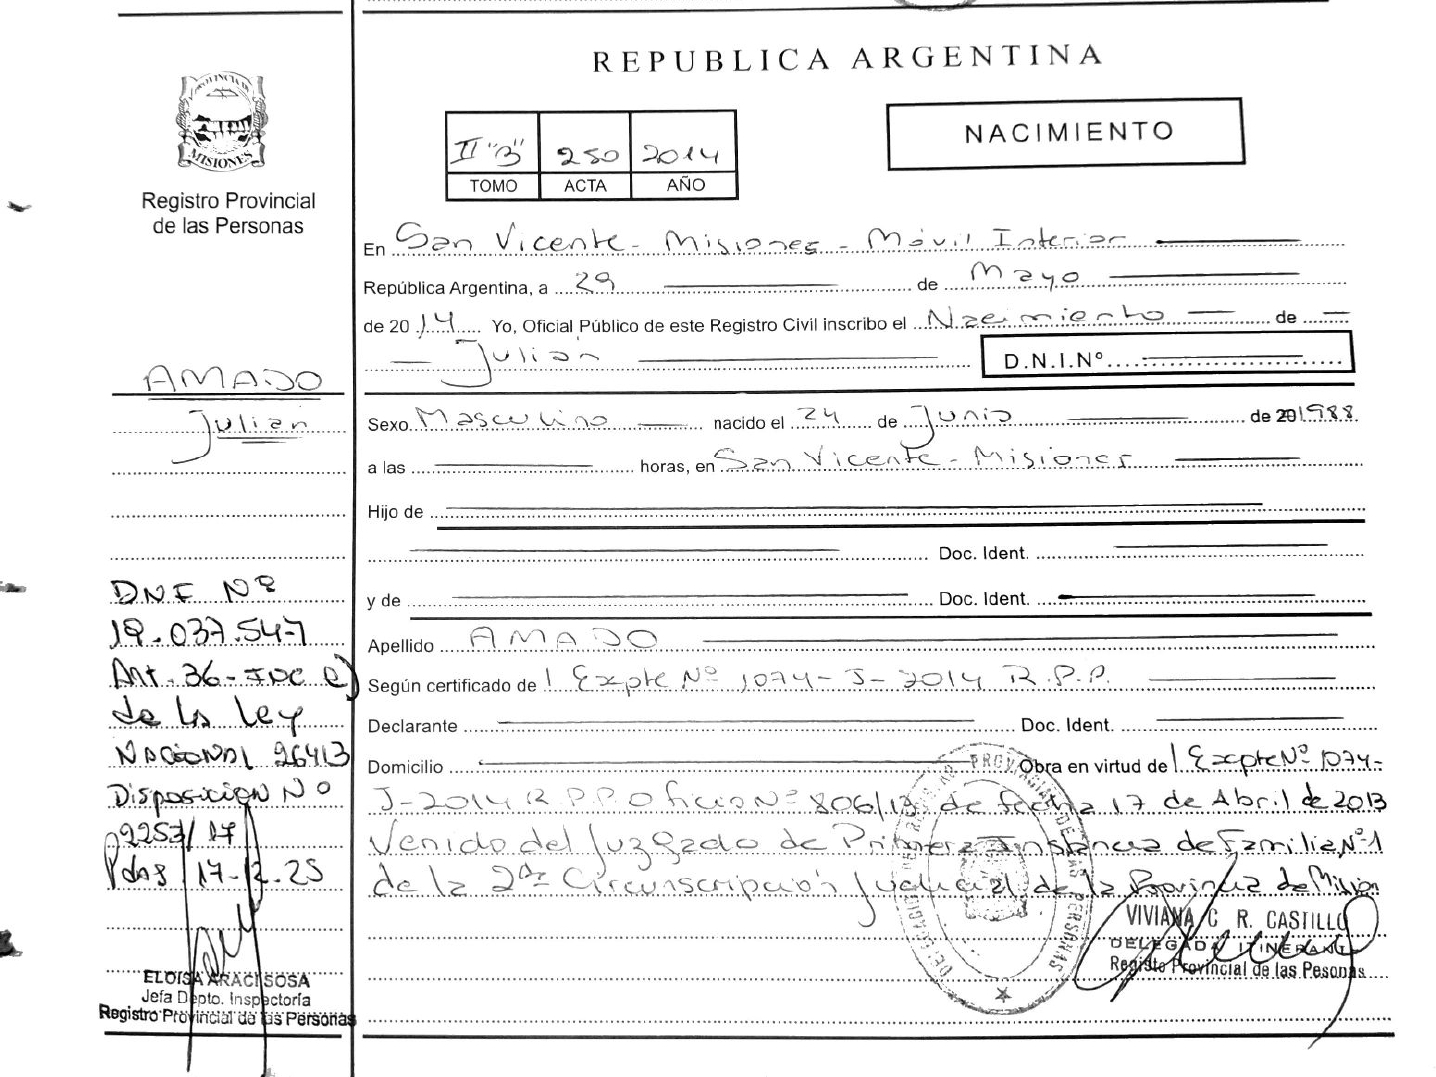 REPUBLICA ARGENTINA
PROVINCIA DE
MISIONES
Registro Provincial
de las Personas
II "B" 250 2014
TOMO ACTA AÑO
NACIMIENTO
En San Vicente - Misiones - Móvil Interior
República Argentina, a 29 de Mayo
de 2014 Yo, Oficial Público de este Registro Civil inscribo el Nacimiento de
Julián
D.N.I.Nº
AMADO
Julián
Sexo Masculino nacido el 24 de Junio de 201988
a las horas, en San Vicente - Misiones
Hijo de
Doc. Ident.
y de Doc. Ident.
Apellido AMADO
Según certificado de Expte Nº 1074-J-2014 R.P.P.
Declarante Doc. Ident.
Domicilio Obra en virtud de Expte Nº 1074-
J-2014 R.P.P. Oficio Nº 806/13 de fecha 17 de Abril de 2013
Venido del Juzgado de Primera Instancia de Familia Nº 1
de la 2da Circunscripción Judicial de la Provincia de Mision
DNI Nº
19.037.547
Art. 36 - INC e)
de la Ley
NACIONAL 26413
Disposición Nº
2253/17
Pdas 17-12-25
ELOISA ARACI SOSA
Jefa Dpto. Inspectoría
Registro Provincial de las Personas
VIVIANA C R. CASTILLO
DELEGADA ITINERANT
Registo Provincial de las Pesonas